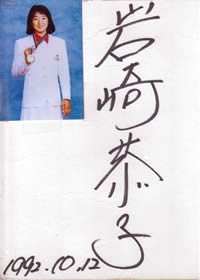 岩崎恭子
1992.10.12